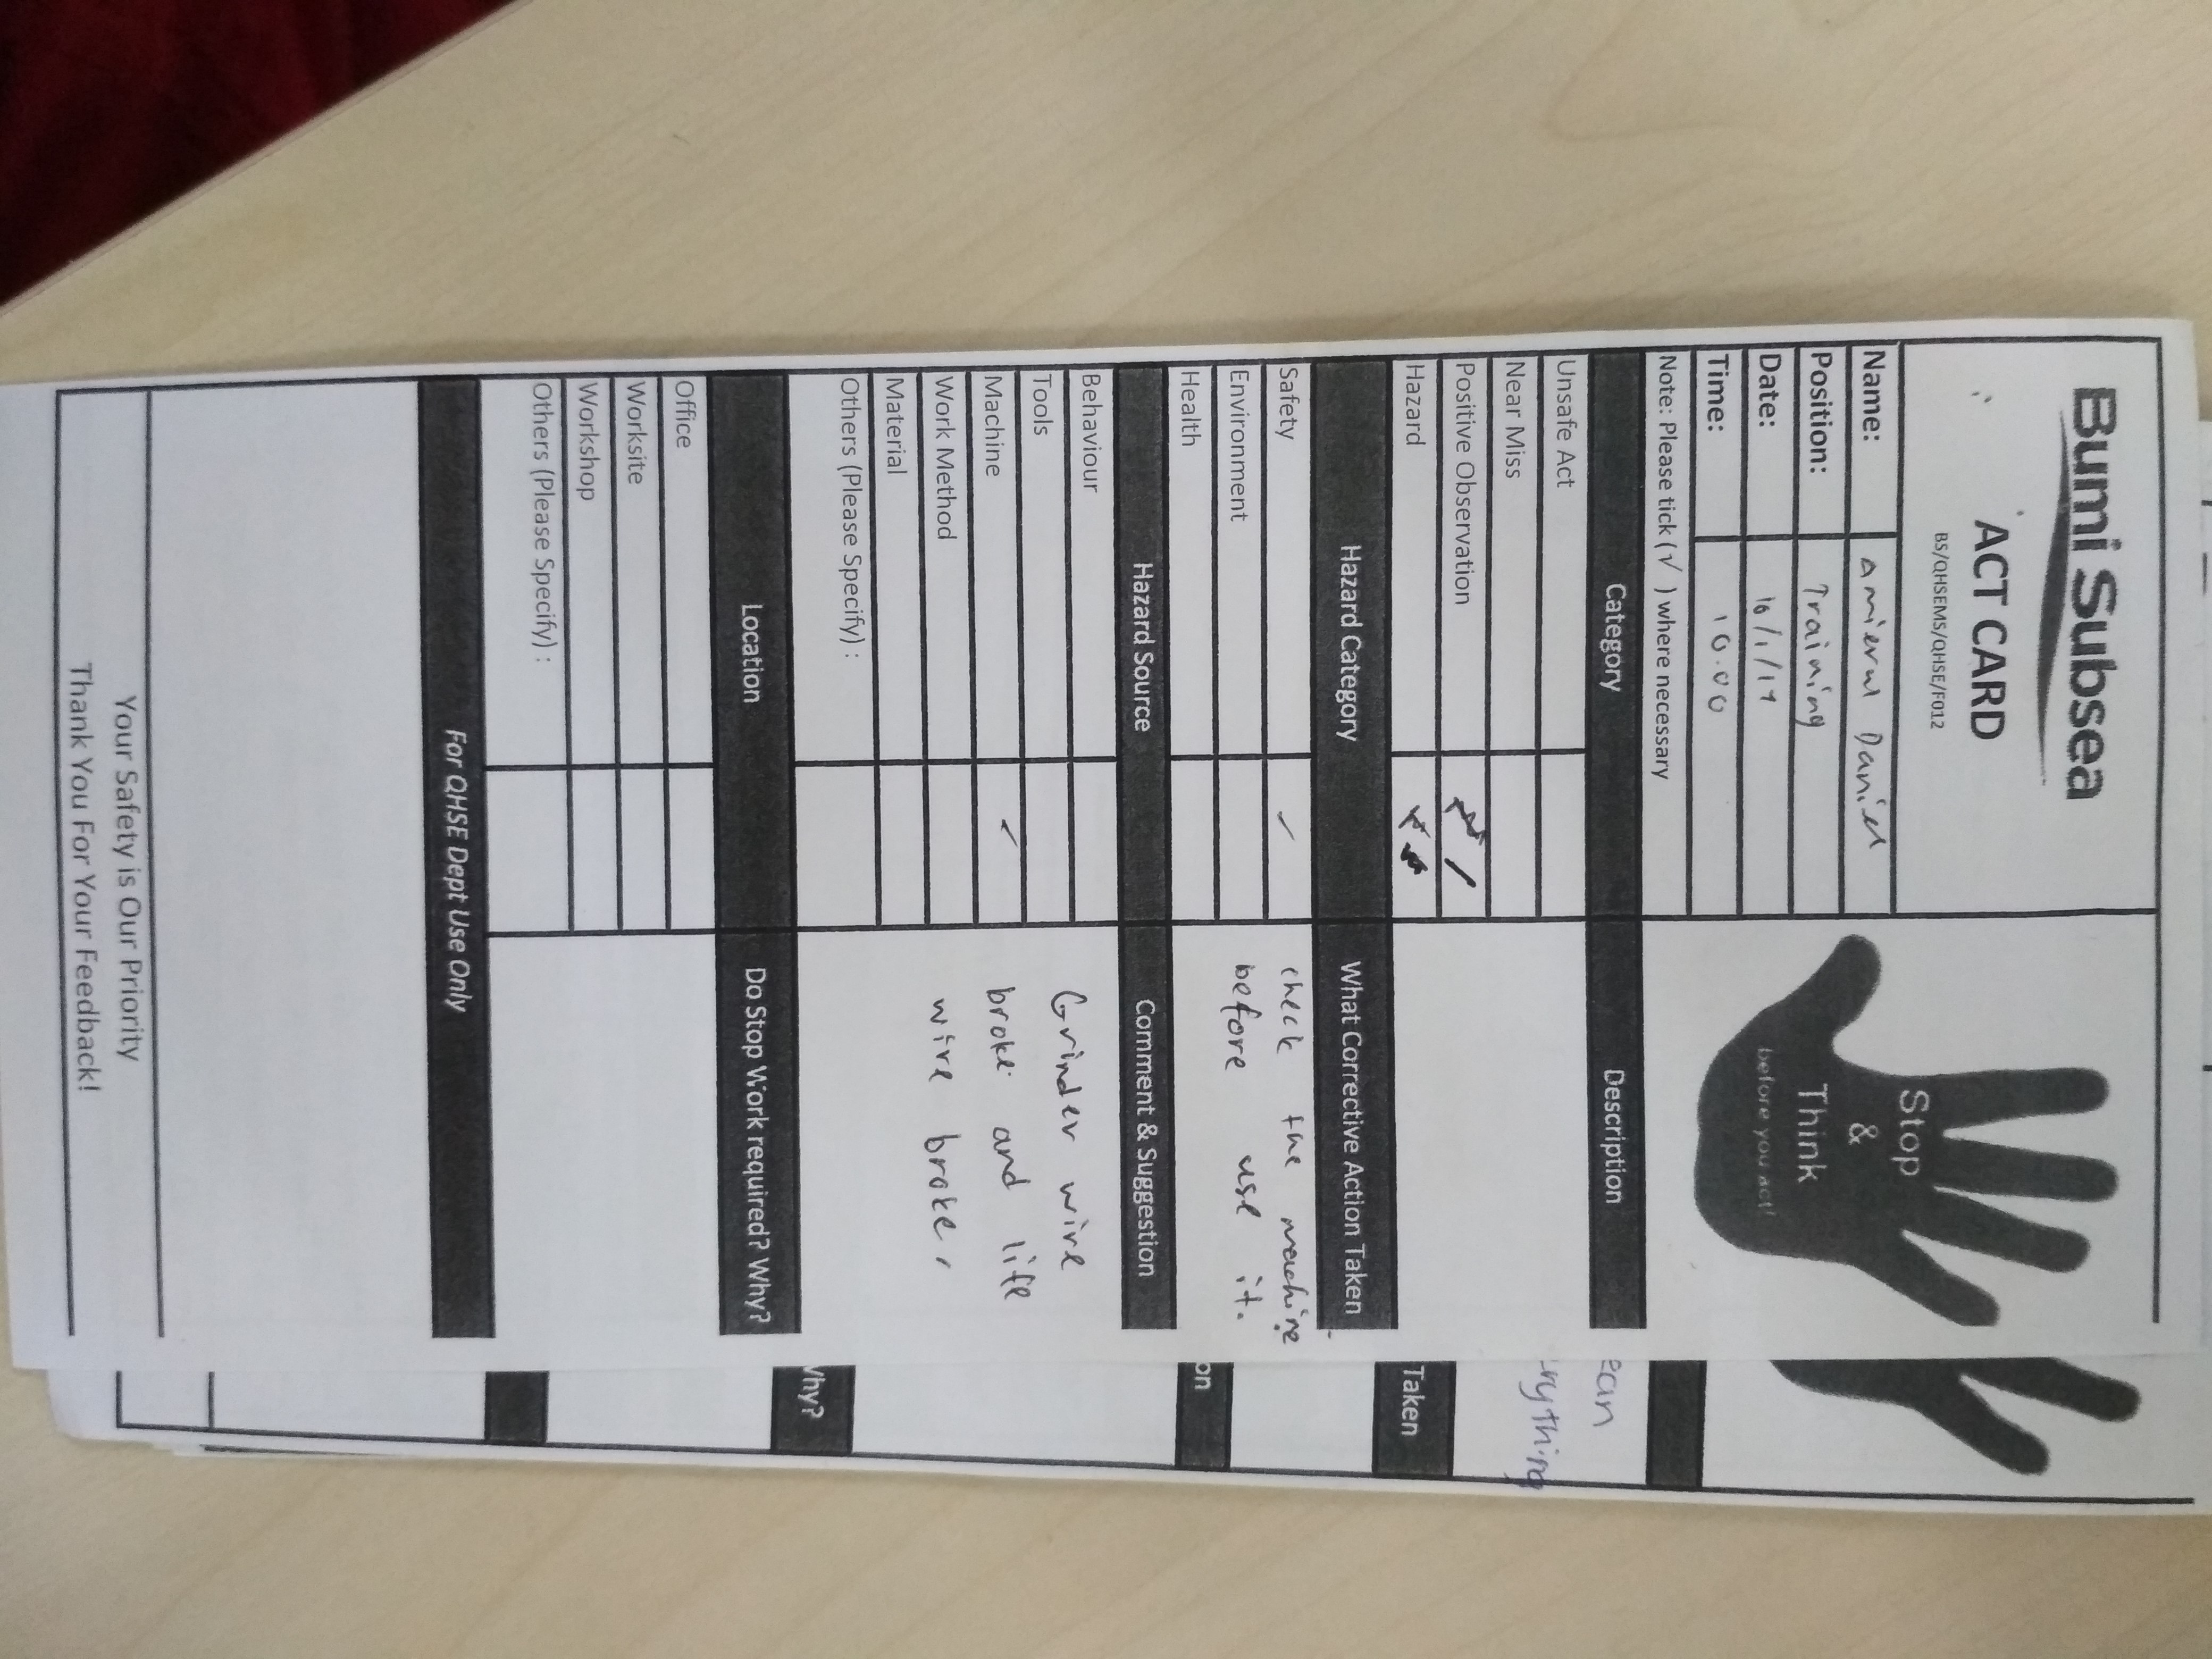 Bumi Subsea
ACT CARD
BS/QHSEMS/QHSE/F012
Stop
&
Think
before you act!
Name: Amierul Daniel
Position: Training
Date:
Time: 10.00
Note: Please tick (√ ) where necessary
Category Description
Unsafe Act
Near Miss
Positive Observation
Hazard
Hazard Category What Corrective Action Taken
Safety ✓ check the machine
Environment before use it.
Health
Hazard Source Comment & Suggestion
Behaviour
Tools Grinder wire
Machine ✓ broke and life
Work Method wire broke,
Material
Others (Please Specify) :
Location Do Stop Work required? Why?
Office
Worksite
Workshop
Others (Please Specify) :
For QHSE Dept Use Only
Your Safety is Our Priority
Thank You For Your Feedback!
ean
rything
Taken
on
Why?